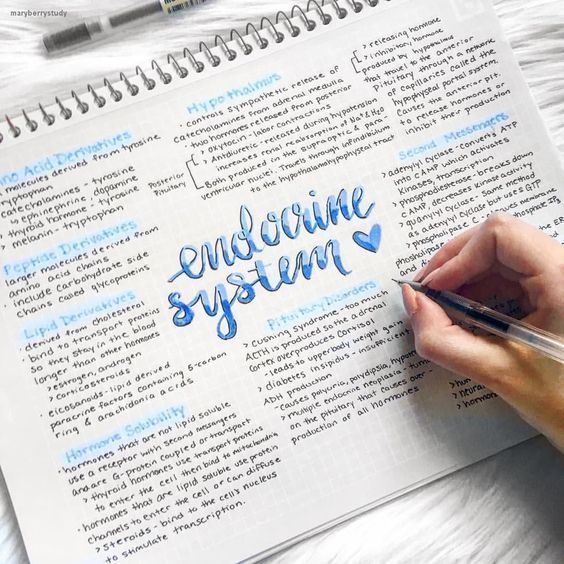 maryberrystudy
ino Acid Derivatives
molecules derived from tyrosine
tryptophan
catecholamines - tyrosine
> ephinephrine, dopamine
thyroid hormone - tyrosine
> melanin - tryptophan
Peptide Derivatives
larger molecules derived from
amino acid chains
· include carbohydrate side
chains called glycoproteins
Lipid Derivatives
· derived from cholesterol
· bind to transport proteins
so they stay in the blood
longer than other hormones
> estrogen, androgen
> corticosteroids
· eicosanoids - lipid derived
paracrine factors containing 5-carbon
ring & arachidonia acids
Hormone Solubility
· hormones that are not lipid soluble
use a receptor with second messangers
and are G-protein coupled or transport
> thyroid hormones use transport proteins
to enter the cell then bind to mitochondria
· hormones that are lipid soluble use protein
channels to enter the cell or can diffuse
> steroids - bind to the cell's nucleus
to stimulate transcription.
Hypothalmus
· controls sympathetic release of
catecholamines from adrenal medulla
· two hormones released from posterior
> oxytocin - labor contractions
> Antidiuretic - released during hypotension
increases renal reabsorption of Na⁺ & H₂O
Posterior
Pituitary
Both produced in the supraoptic & para-
ventricular nuclei. Travels through infindibulum
to the hypothalamohypophyseal tract
endocrine
system
Pituitary Disorders
> cushing Syndrome - too much
ACTH is produced so the adrenal
cortex overproduces cortisol
- leads to upper body weight gain
> diabetes insipidus - insufficient
ADH production
- causes polyuria, polydipsia,
> multiple endocrine neoplasia -
on the pituitary that causes over-
production of all hormones
> releasing hormone
> inhibitory hormone
produced by hypothalmus
that travel to the anterior
Pituitary through a network
of capillaries called the
hypophyseal portal system,
causes the anterior pit.
to release hormones or
inhibit their production
Second Messengers
> adenylyl cyclase - converts ATP
into CAMP which activates
kinases, transcription
> phosphodiesterase - breaks down
CAMP, decreases kinase activity
> guanylyl cyclase - same method
as adenylyl cyclase but uses GTP
> phospholipase C - cleaves membrane
phosholipase
and
> hormone